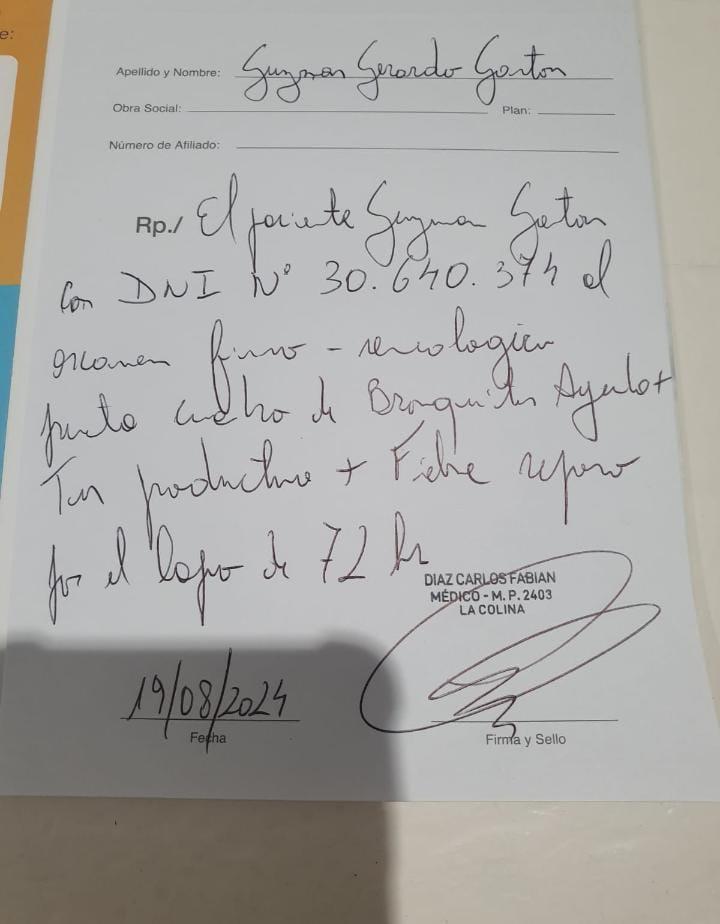 e:
Apellido y Nombre: Guzman Gerardo Gaston
Obra Social: Plan:
Número de Afiliado:
Rp./ El paciente Guzman Gaston
Con DNI N° 30.640.374 al
examen físico - semiologico
presenta cuadro de Bronquitis Aguda +
Tos productiva + Fiebre reposo
por el lapso de 72 hs
DIAZ CARLOS FABIAN
MÉDICO - M. P. 2403
LA COLINA
19/08/2024
Fecha
Firma y Sello